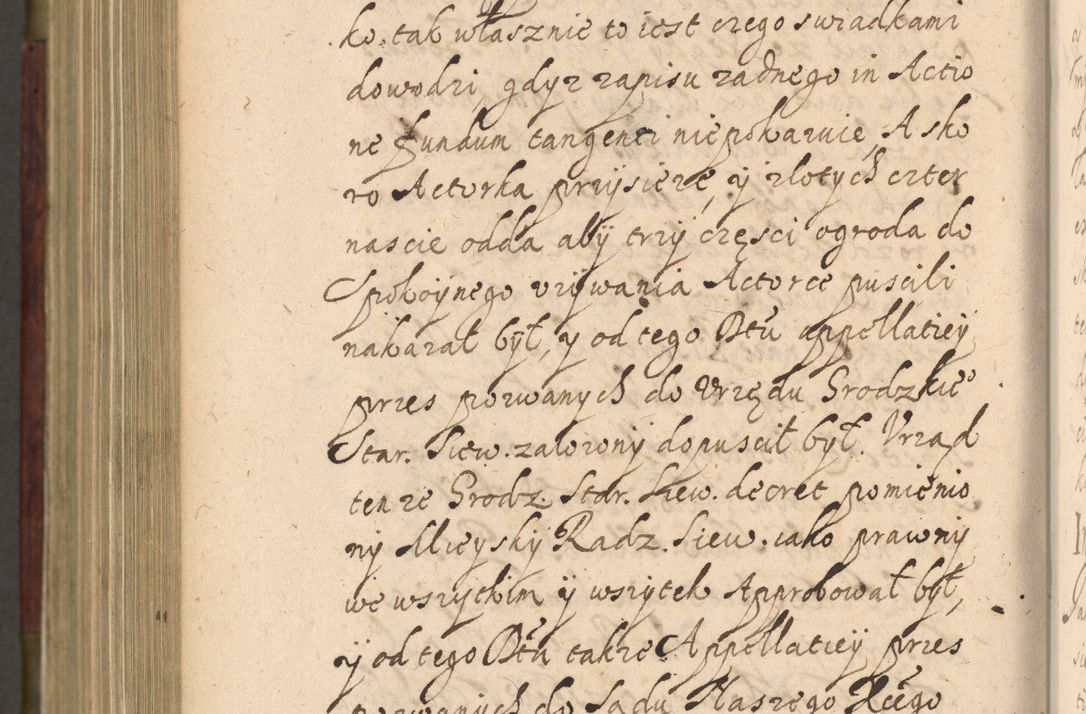 ko, tak własznie to iest czego swiadkami
dowodzi, gdyz zapisu zadnego in Actio
ne fundum tangenti niepokazuie, A sko
ro Actorka przysieze, y zlotych czter
nascie odda aby trzy części ogroda do
Spokoynego vzywania Actorce puscili
nakazał był, y od tego Dtu appellatiey
przes pozwanych do Vrzędu Grodzkie⁰
Star. Siew. założony dopuscił był. Vrząd
ten ze Grodz. Star. Siew. decret pomienio
ny Mieysky Radz. Siew. iako prawny
we wszytkim y wszytek Approbował był,
y od tego Dtu takze Appellatiey przes
pozwanych do Sadu Naszego Xcego